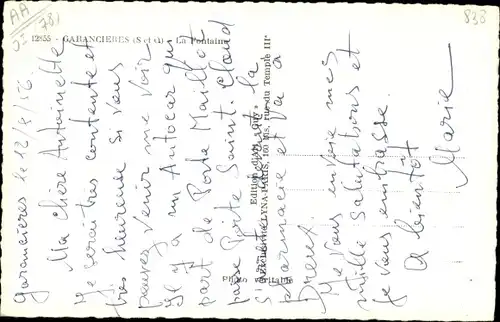 12855 - GARANCIERES (S et O) - La Fontaine
AA
78)
838
Garancières le 12/8/56.
Ma Chère Antoinette
Je serais très contente et
très heureuse si vous
pouvez venir me voir
Il y a un Autocar qui
part de Porte Maillot
passe Porte Saint. Cloud
s'arrête devant la
pharmacie et va à
Dreux.
Je vous envoie mes
mille Salutations et
je vous embrasse.
A bientôt
Marie
Edition
LYNA-PARIS, 160 bis, rue du Temple IIIe
Photo véritable